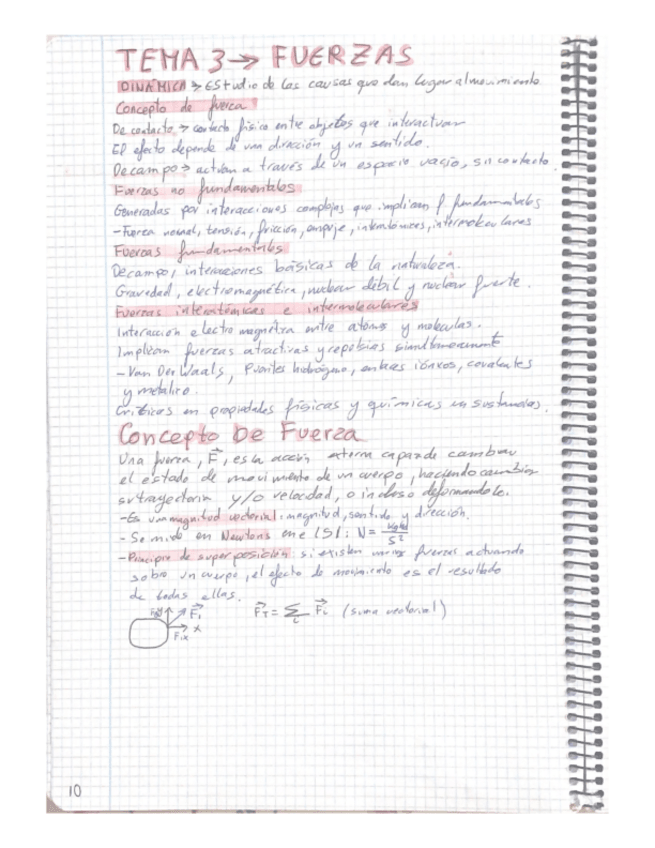 TEMA 3 → FUERZAS
DINÁMICA → Estudio de las causas que dan lugar al movimiento
Concepto de fuerza
De contacto → contacto físico entre objetos que interactuan
El efecto depende de una dirección y un sentido.
De campo → actúan a través de un espacio vacío, sin contacto.
Fuerzas no fundamentales
Generadas por interacciones complejas que implican f fundamentales
- Fuerza normal, tensión, fricción, empuje, interatómicas, intermoleculares
Fuerzas fundamentales
De campo, interacciones básicas de la naturaleza.
Gravedad, electromagnética, nuclear débil y nuclear fuerte.
Fuerzas interatómicas e intermoleculares
Interacción electromagnética entre atomos y moleculas.
Implican fuerzas atractivas y repulsivas simultaneamente
- Van Der Waals, Puentes hidrógeno, enlaces iónicos, covalentes
y metálico.
Críticas en propiedades físicas y químicas en sustancias.
Concepto De Fuerza
Una fuerza, F, es la acción externa capaz de cambiar
el estado de movimiento de un cuerpo, haciendo cambiar
su trayectoria y/o velocidad, o incluso deformandolo.
- Es una magnitud vectorial: magnitud, sentido y dirección.
- Se mide en Newtons en el SI: N = kg·m/s²
- Principio de superposición: si existen varias fuerzas actuando
sobre un cuerpo, el efecto de movimiento es el resultado
de todas ellas.
y F₁
F₁x x
F_T = Σ_i F_i (suma vectorial)
10